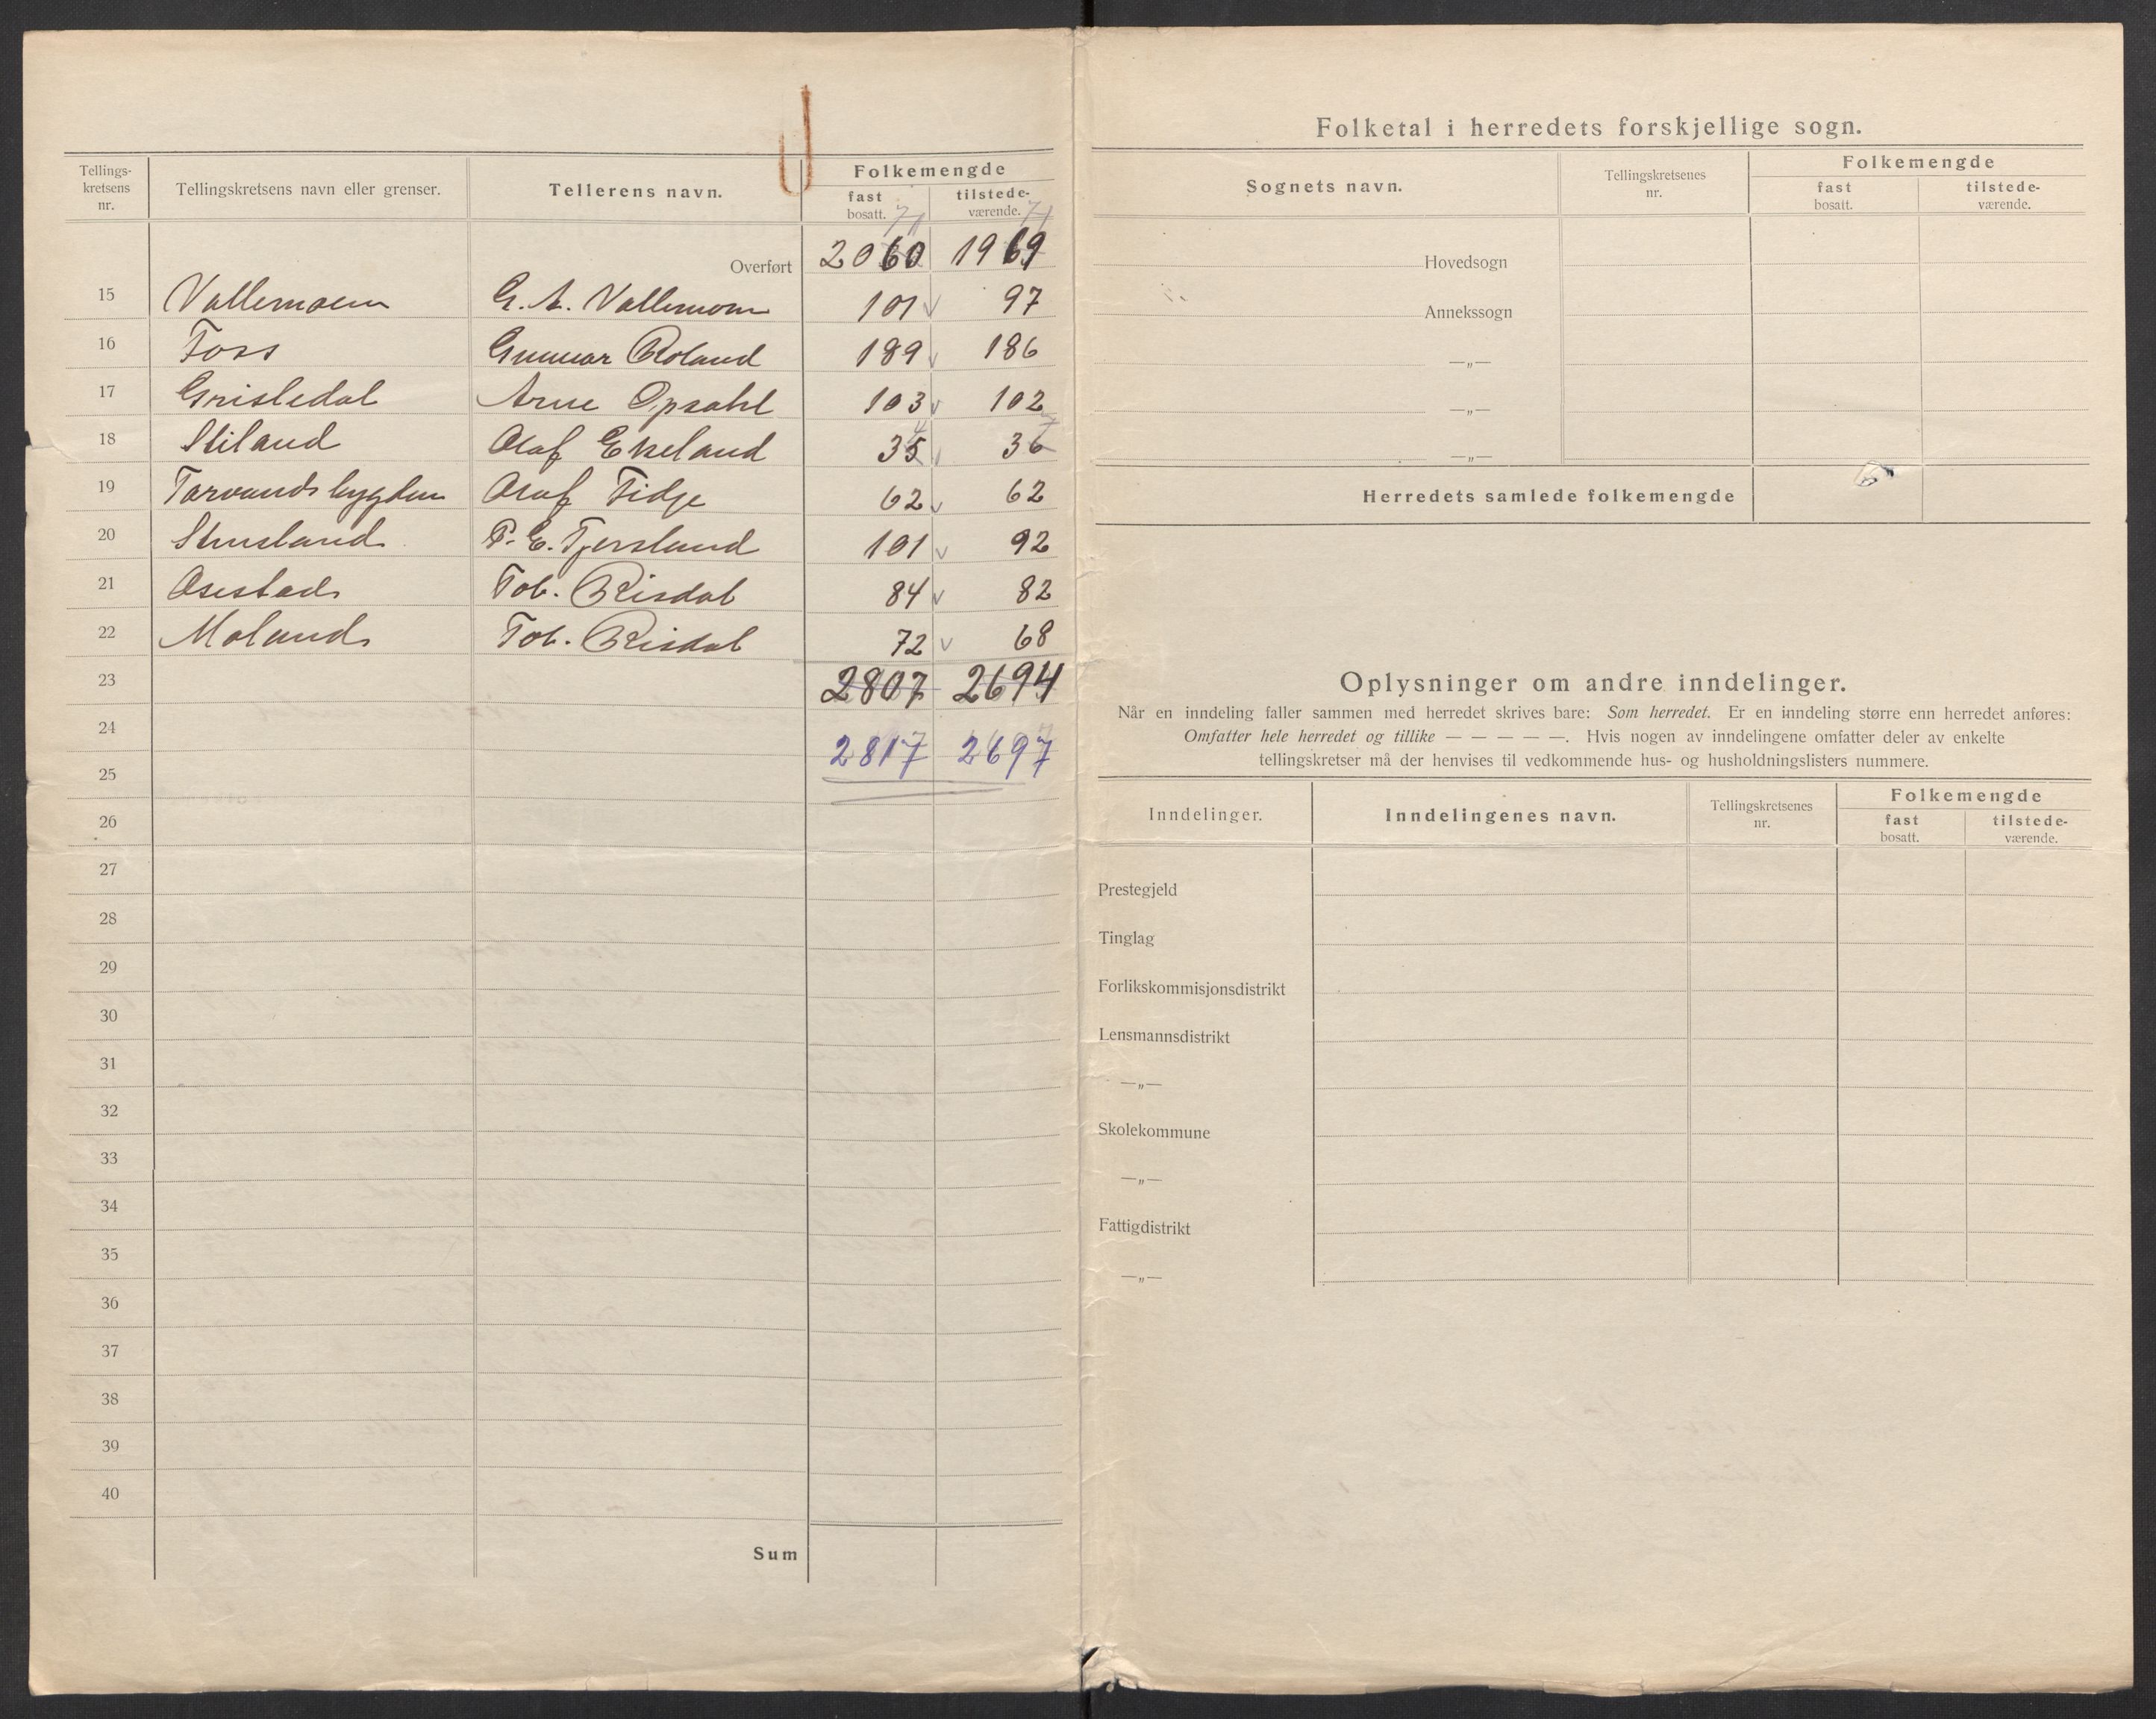 Tellings-kretsens nr. Tellingskretsens navn eller grenser. Tellerens navn. Folkemengde fast bosatt. tilstede-værende.
71 71
Overført 2060 1969
15 Vallemoen G. A. Vallemoen 101 97
16 Foss Gunnar Roland 189 186
17 Grisledal Arne Opsahl 103 102
18 Stiland Olaf Ekeland 35 36
19 Tarvandsbygden Olaf Fidje 62 62
20 Stusland P. E. Tjersland 101 92
21 Osestad Tob. Risdal 84 82
22 Moland Tob. Risdal 72 68
23 2807 2694
24 2817 2697
25
26
27
28
29
30
31
32
33
34
35
36
37
38
39
40
Sum
Folketal i herredets forskjellige sogn.
Sognets navn. Tellingskretsenes nr. Folkemengde fast bosatt. tilstede-værende.
Hovedsogn
Annekssogn
—„—
—„—
—„—
Herredets samlede folkemengde
Oplysninger om andre inndelinger.
Når en inndeling faller sammen med herredet skrives bare: Som herredet. Er en inndeling større enn herredet anføres:
Omfatter hele herredet og tillike — — — — —. Hvis nogen av inndelingene omfatter deler av enkelte
tellingskretser må der henvises til vedkommende hus- og husholdningslisters nummere.
Inndelinger. Inndelingenes navn. Tellingskretsenes nr. Folkemengde fast bosatt. tilstede-værende.
Prestegjeld
Tinglag
Forlikskommisjonsdistrikt
Lensmannsdistrikt
—„—
Skolekommune
—„—
Fattigdistrikt
—„—